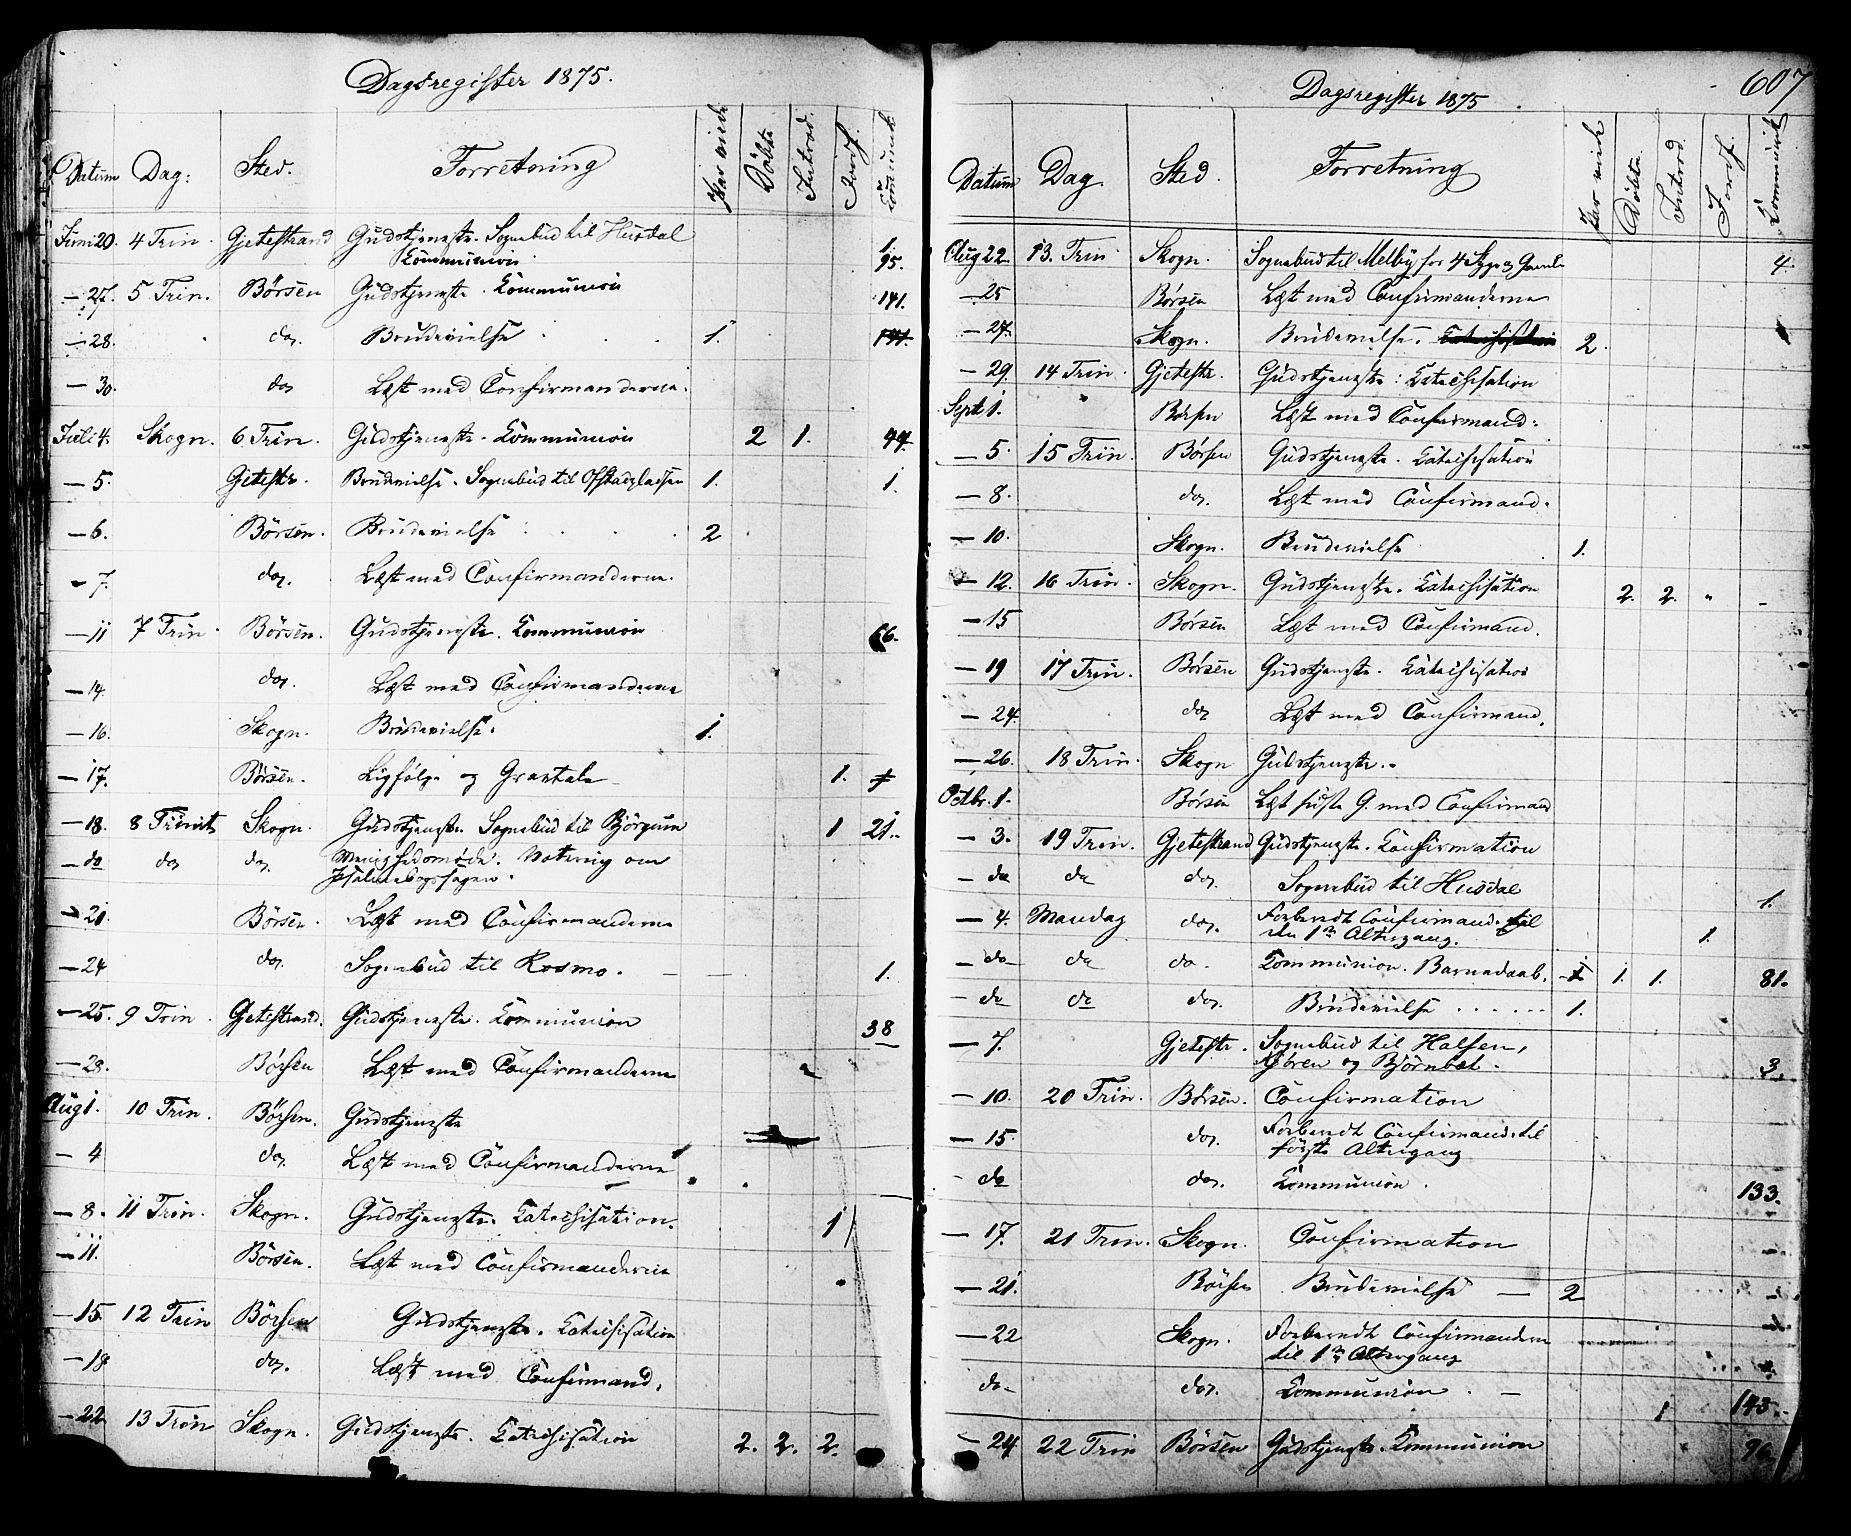 Dagsregister 1875.
Datum Dag: Sted. Forretning Par viede Döbte Introd. Jordf. Communik
Juni 20. 4 Trin. Gjetestrand Gudstjeneste. Sognebud til Husdal 1.
Communion 95.
— 27. 5 Trin. Börsen Gudstjeneste. Communion 141.
— 28. do. Brudevielse 1. 141.
— 30. do. Læst med Confirmanderne.
Juli 4. Skogn. 6 Trin. Gudstjeneste. Communion 2 1. 44.
— 5. Gjetestr. Brudevielse. Sognebud til Ofstadpladsen 1. 1.
— 6. Börsen. Brudevielse 2
— 7. do. Læst med Confirmanderne.
— 11 7 Trin. Börsen. Gudstjeneste. Communion 66.
— 14. do. Læst med Confirmanderne
— 16. Skogn. Brudevielse. 1.
— 17. Börsen. Ligfølge og Gravtale 1.
— 18. 8 Trinit. Skogn. Gudstjeneste Sognebud til Bjørgum 1 21.
— do do do. Menighedsmøde. Votering om
Psalmebogssagen.
— 21. Börsen. Læst med Confirmanderne
— 24 do. Sognebud til Rosmo. 1.
— 25. 9 Trin. Gjetestrand. Gudstjeneste. Communion 38
— 28. Börsen Læst med Confirmanderne
Aug 1. 10 Trin. Börsen. Gudstjeneste
— 4 do. Læst med Confirmanderne
— 8. 11 Trin. Skogn. Gudstjeneste. Catechisation. 1
— 11. Börsen. Læst med Confirmanderne
— 15 12 Trin Börsen Gudstjeneste. Catechisation
— 18 do. Læst med Confirmand.
— 22 13 Trin Skogn. Gudstjeneste. Catechisation 2. 2. 2.
Dagsregister 1875 607
Datum Dag. Sted. Forretning Par viede Döbte. Introd. Jordf. Kommunik
Aug 22 13. Trin Skogn. Sognebud til Melby for 4 Syge og Gamle 4.
— 25 Börsen Læst med Confirmanderne
— 27. Skogn. Brudevielse. Catechisation 2.
— 29. 14 Trin. Gjetestr. Gudstjeneste: Catechisation
Sept 1. Börsen Læst med Confirmand:
— 5. 15 Trin. Börsen Gudstjeneste. Catechisation
— 8. do. Læst med Confirmand.
— 10. Skogn. Brudevielse 1.
— 12. 16 Trin. Skogn. Gudstjeneste. Catechisation 2. 2. " -
— 15 Börsen Læst med Confirmand.
— 19 17 Trin. Börsen Gudstjeneste. Catechisation
— 24. do Læst med Confirmand.
— 26. 18 Trin. Skogn Gudstjeneste.
Octbr. 1. Börsen Læst sidste G. med Confirmand
— 3. 19 Trin. Gjetestrand Gudstjeneste. Confirmation
— do do do. Sognebud til Husdal 1.
— 4. Mandag do. Forberedt Confirmand. til
den 1ste Altergang. 1.
— do do do. Communion. Barnedaab. 1. 1. 81.
— do do do. Brudevielse . . . . . . 1.
— 7. Gjetestr. Sognebud til Halsen,
Kjören og Björnbet. 3.
— 10. 20 Trin. Börsen. Confirmation
— 15. do. Forberedt Confirmand. til
første Altergang
— do do. Communion. 133.
— 17. 21 Trin. Skogn. Confirmation
— 21. Börsen Brudevielse — 2
— 22 Skogn. Forberedt Confirmanderne
til 1ste Altergang
do do. Communion. — 1 143.
— 24 22 Trin Börsen Gudstjeneste Communion 96